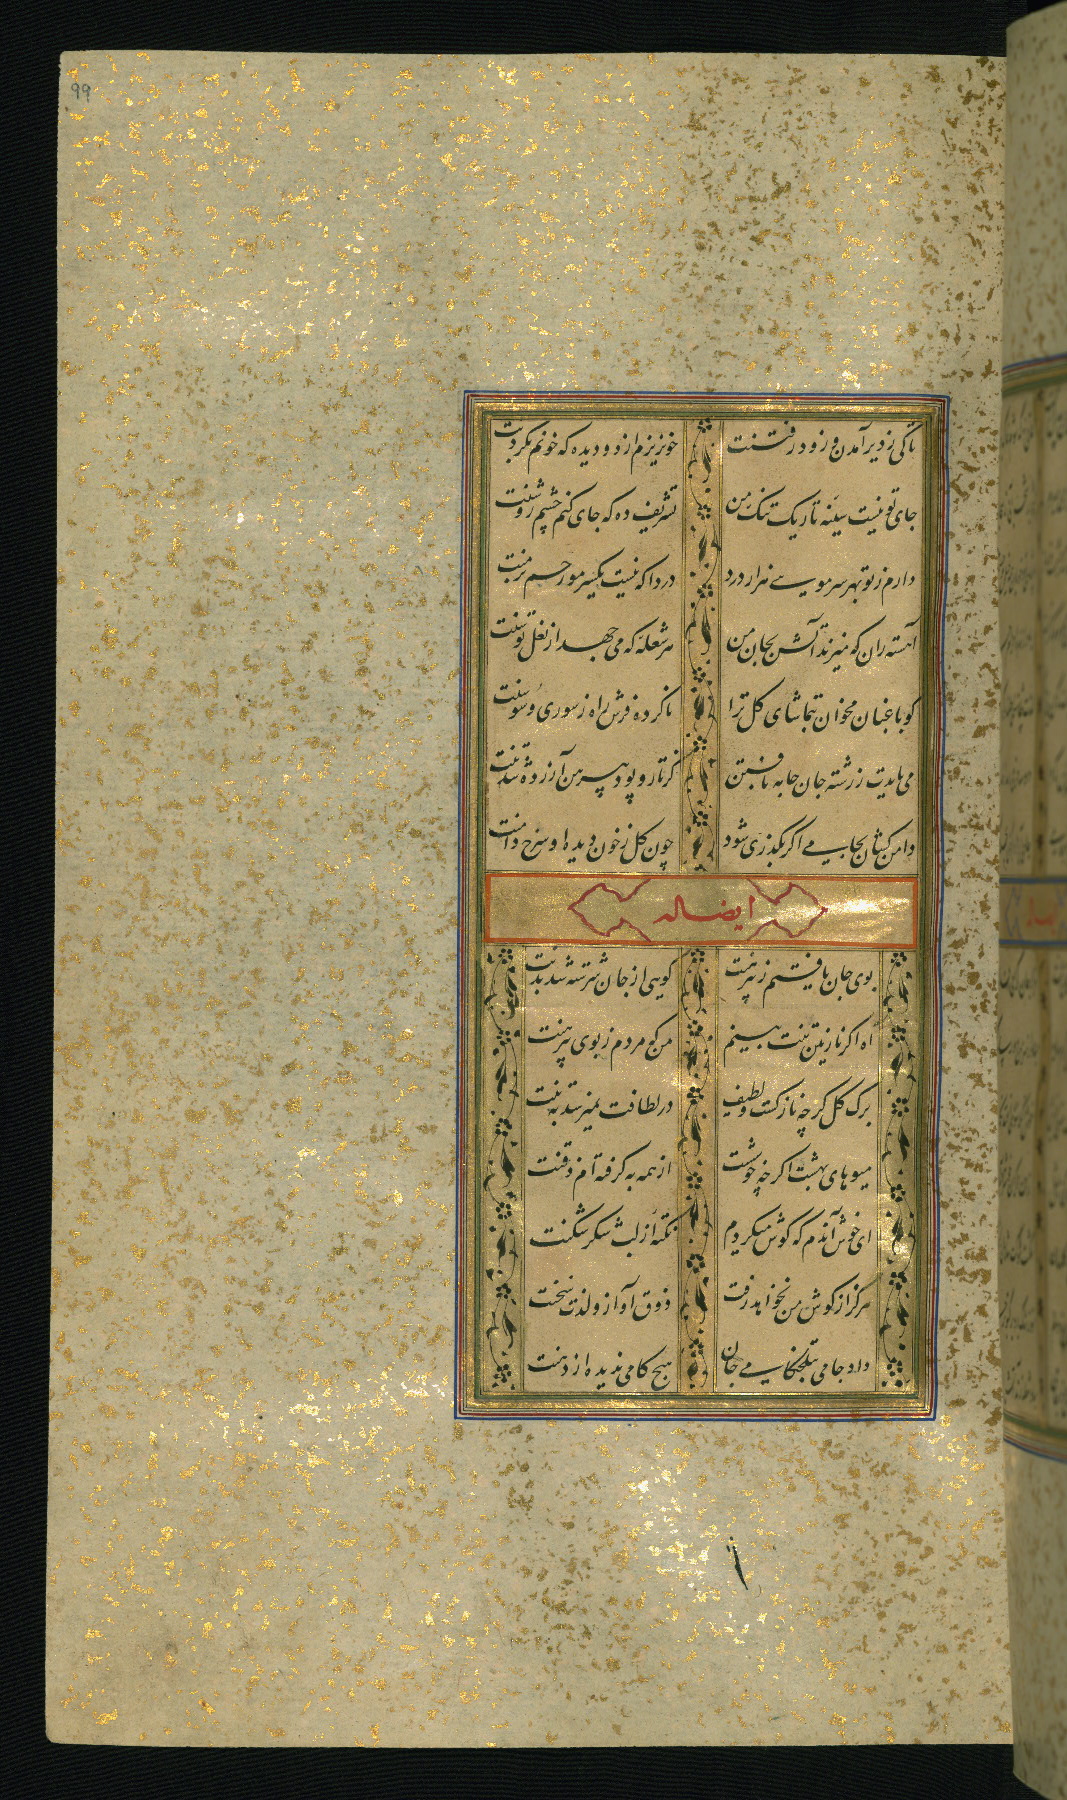 99
تا کی ز دیر آمدن و زود رفتنت خونریزم از دو دیده که خونم بگردنت
جای تو نیست سینه تاریک تنگ من تشریف ده که جای کنم چشم روشنت
دارم ز تو بهر سر مویی هزار درد دردا که نیست یکسر مو رحم بر منت
آهسته ران که میزند آتش بجان من هر شعله که می جهد از نعل توسنت
کو باغبان مخوان بتماشای کل ترا ناکرده فرش راه ز سوری و سوسنت
می بایدت ز رشته جان جامه بافتن کز تار و پود پیرهن آزرده شد تنت
دامن کشان بجامی اکر بگذری شود چون کل ز خون دیدها و سرخ دامنت
ایضاله
بوی جان یافتیم ز پیرهنت کویی از جان سرشته شد بدنت
آه اکر نازنین تنت بینم من که مردم ز بوی پیرهنت
برک کل کرچه نازکست و لطیف در لطافت نمیرسد به تنت
میوهای بهشت اکرچه خوشست از همه به کرفته ام ذقنت
ای خوش آندم که کوش میکردم نکته از لب شکر شکنت
هرکز از کوش من نخواهد رفت ذوق آواز و لذت سخنت
داد جامی بتلخکامی جان هیچ کامی ندیده از دهنت